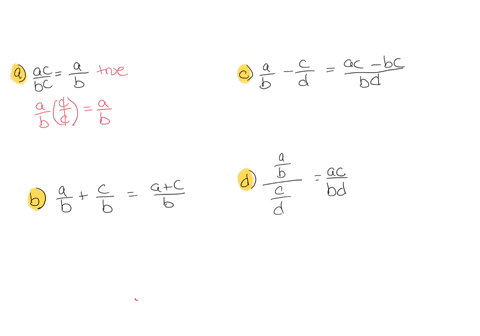 a) ac/bc = a/b true
a/b (c/c) = a/b
b) a/b + c/b = a+c/b
c) a/b - c/d = ac - bc/bd
d) a/b / c/d = ac/bd